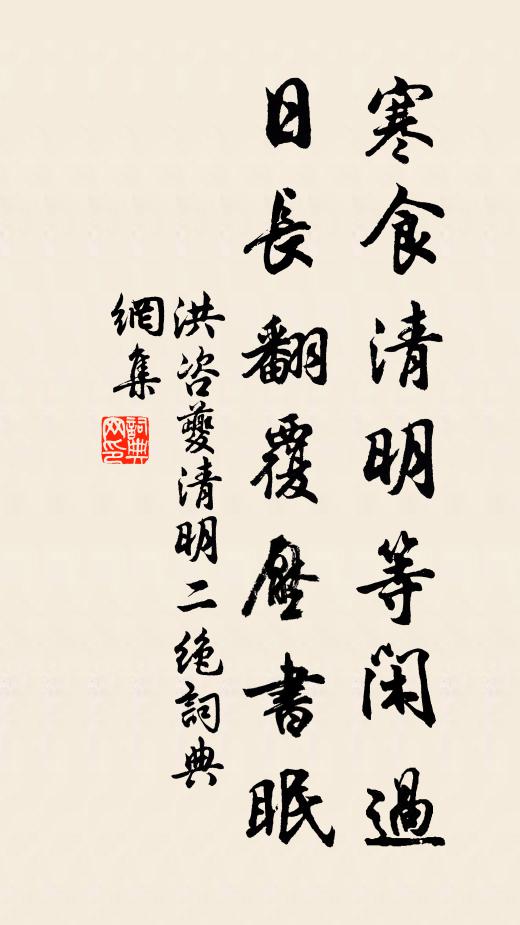 寒食清明等閑過
日長翻覆壓書眠
洪咨夔清明二絶詞典
網集
詞典
网印